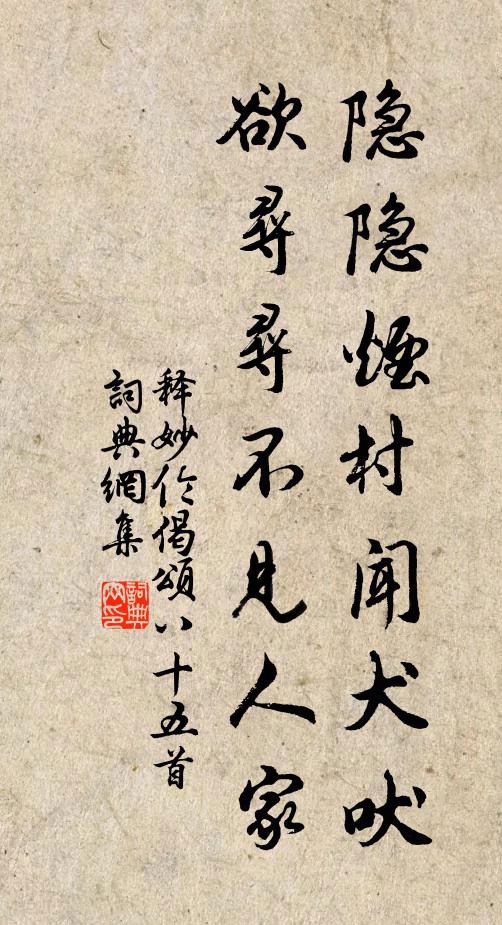 隐隐煙村闻犬吠
欲尋尋不见人家
释妙伦偈頌八十五首
詞典網集
詞典网印